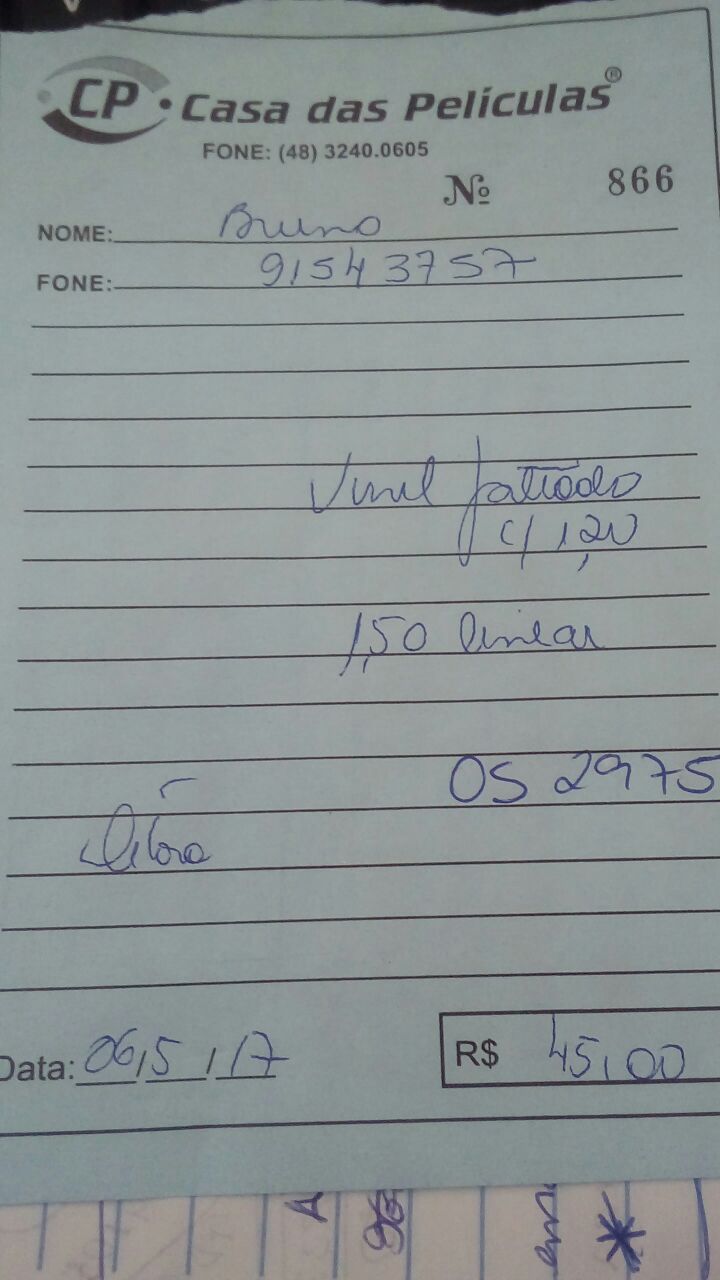 CP • Casa das Películas®
FONE: (48) 3240.0605
Nº 866
NOME: Bruno
FONE: 91543757
Vinil jateado
c/ 1,20
1,50 linear
OS 2975
Débora
Data: 06/5/17
R$ 45,00